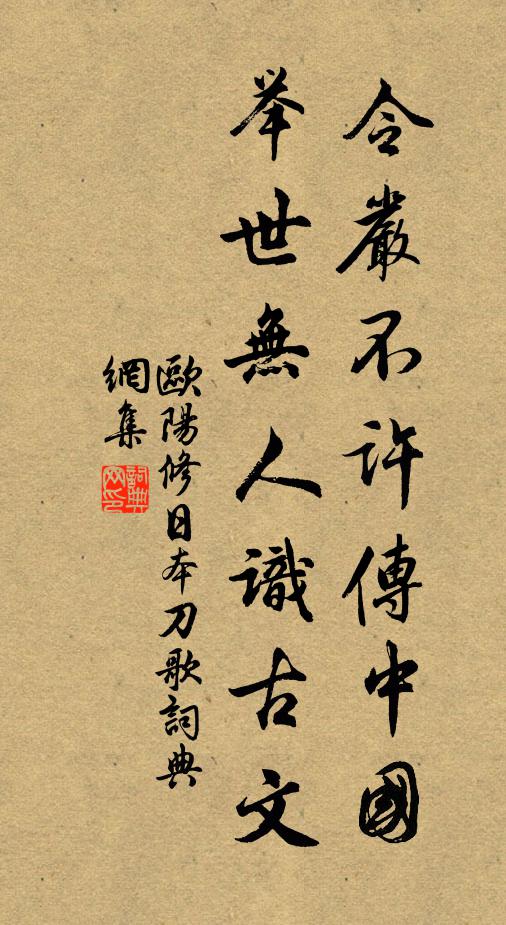 令嚴不許傳中國
举世無人識古文
歐陽修日本刀歌詞典
網集
詞典
网印